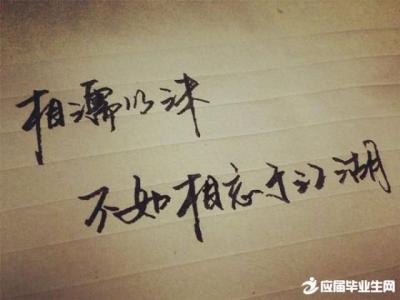 相濡以沫
不如相忘于江湖
应届毕业生网